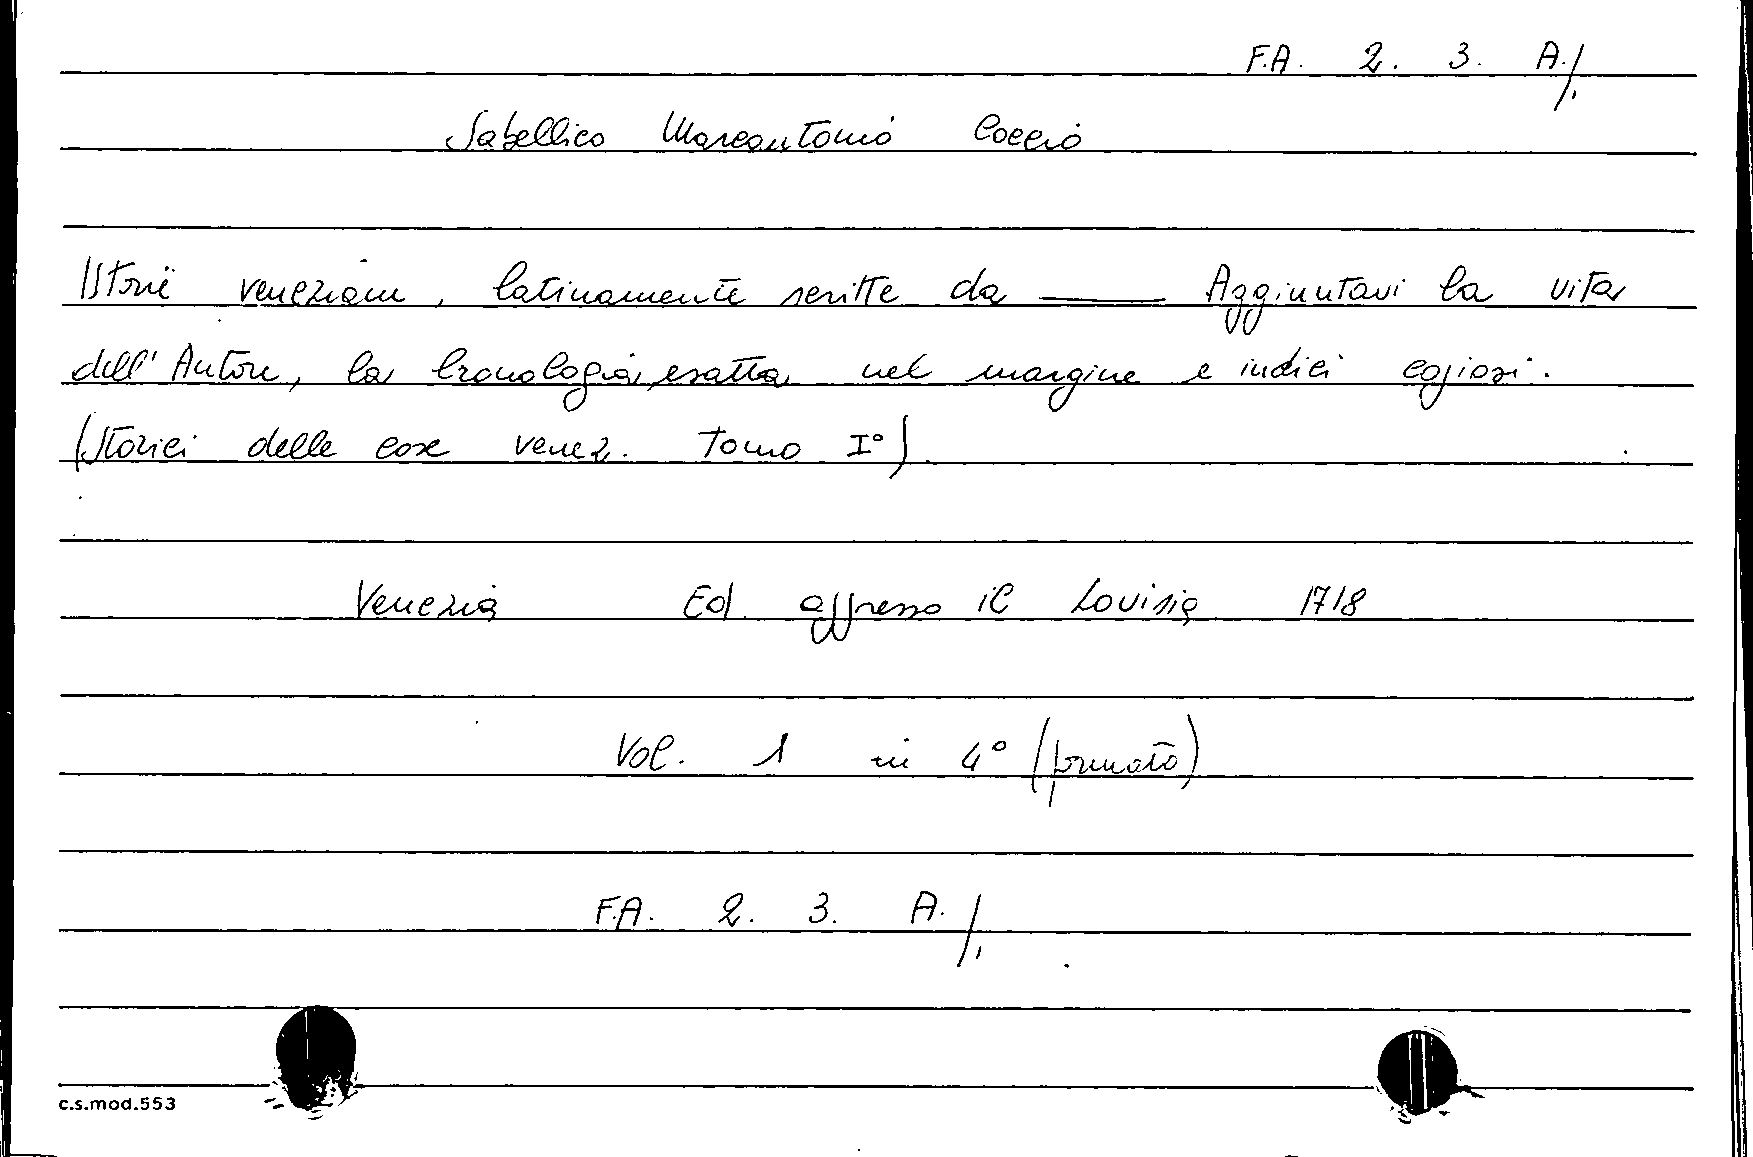 F.A. 2. 3. A./.
Sabellico Marcantonio Coccio
Istorie veneziane, latinamente scritte da —— Aggiuntavi la vita
dell'Autore, la cronologia esatta nel margine e indici copiosi.
(Storici delle cose venez. Tomo I°)
Venezia Ed. appresso il Lovisia 1718
Vol. 1 in 4° (formato)
F.A. 2. 3. A./.
c.s.mod.553